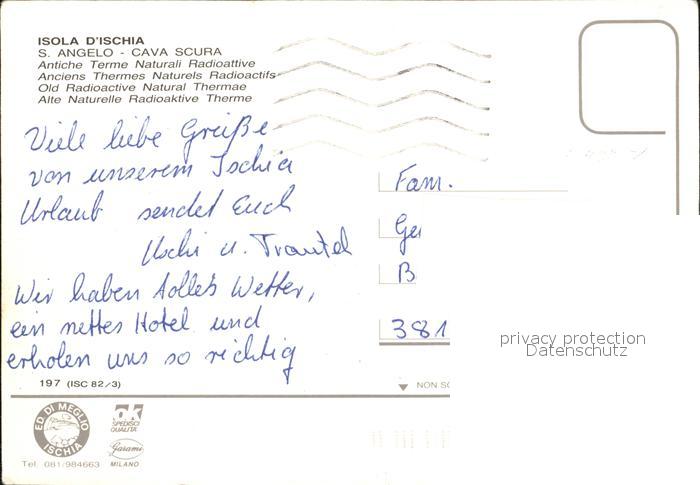 ISOLA D'ISCHIA
S. ANGELO - CAVA SCURA
Antiche Terme Naturali Radioattive
Anciens Thermes Naturels Radioactifs
Old Radioactive Natural Thermae
Alte Naturelle Radioaktive Therme
Viele liebe Grüße
von unserem Ischia
Urlaub sendet Euch
Uschi u. Trautel
Wir haben tolles Wetter,
ein nettes Hotel und
erholen uns so richtig
197 (ISC 82/3)
ED. DI MEGLIO
ISCHIA
Tel. 081/984663
ok
SPEDISCI
QUALITA'
Garami
MILANO
Fam.
Ge
B
381
NON SC
privacy protection
Datenschutz